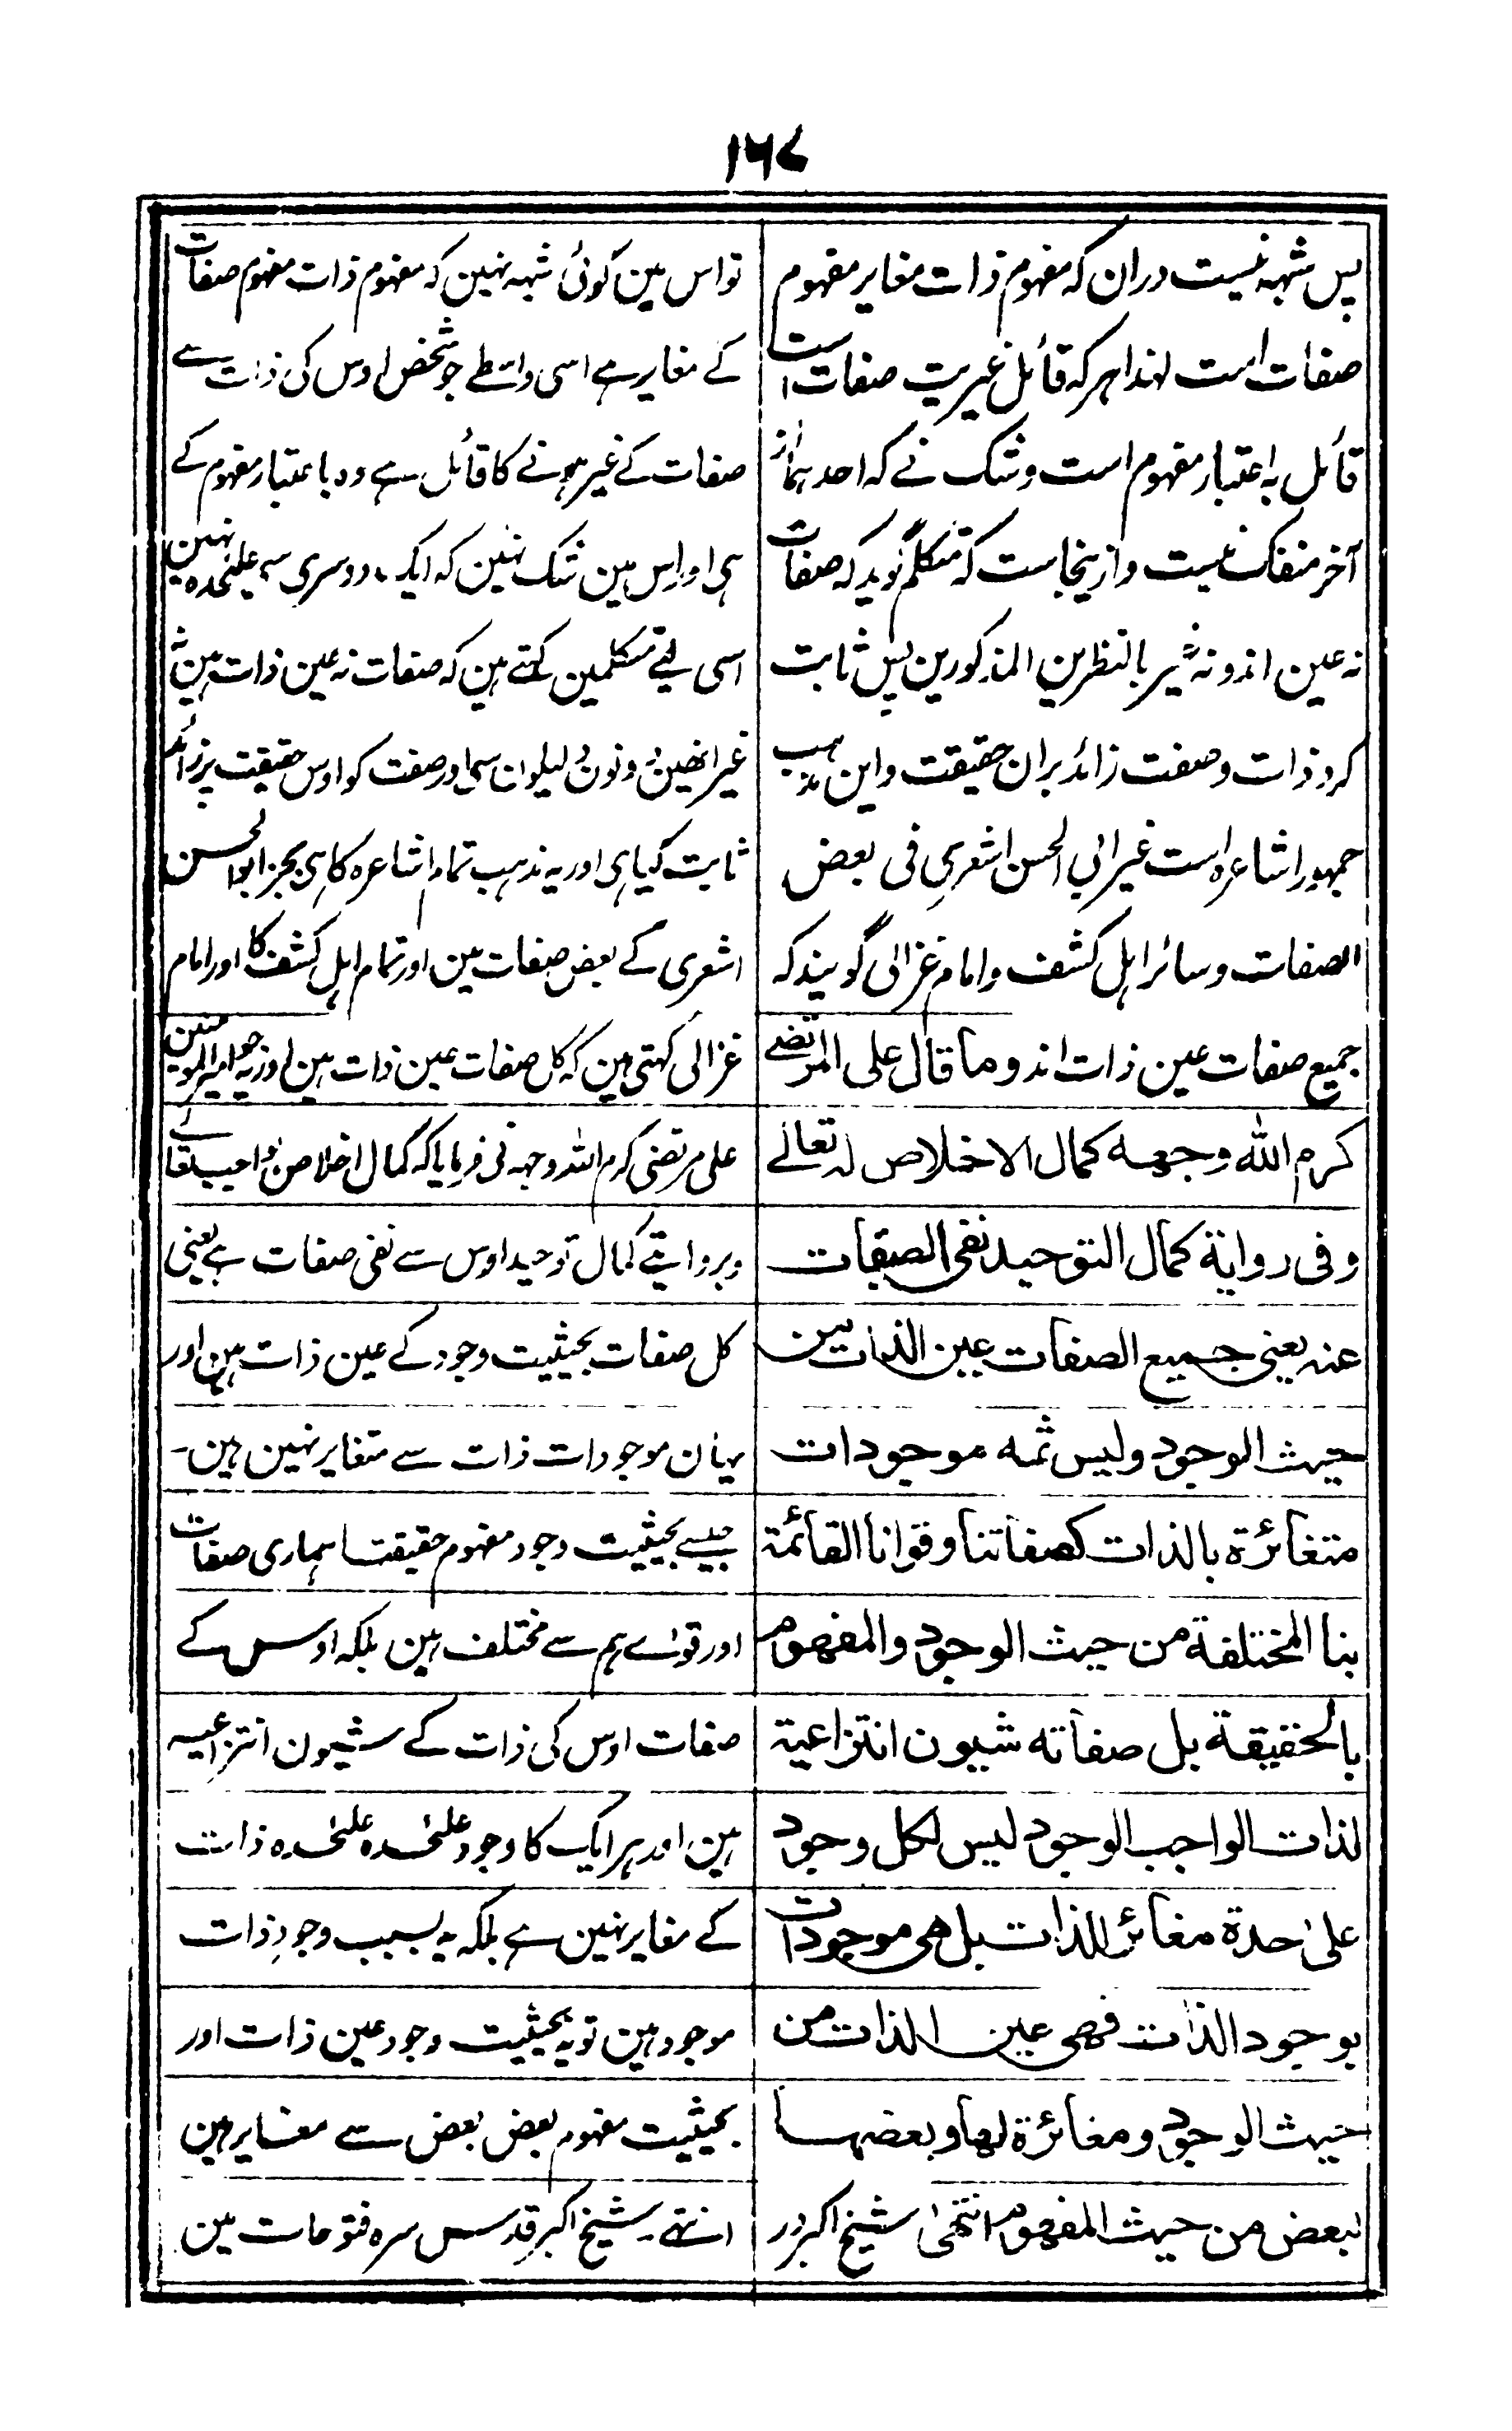 ۱۶۷
پس شبہہ نیست دران کہ مفہوم ذات مغایر مفہوم
صفات است لہذا ہر کہ قائل غیریت صفات است
قائل بہ اعتبار مفہوم است و شک نے کہ احدہما از
آخر منفک نیست و ازینجاست کہ متکلم گوید کہ صفات
نہ عین اند و نہ غیر بالنظرین المذکورین پس ثابت
کرد ذات و صفت زائد بران حقیقت و این مذہب
جمہور اشاعرہ است غیر ابی الحسن اشعری فی بعض
الصفات و سائر اہل کشف و امام غزالی گویند کہ
جمیع صفات عین ذات اند و ما قال علی المرتضے
کرم اللہ وجھہ کمال الاخلاص لہ تعالے
وفی روایة کمال التوحید نفی الصفات
عنہ یعنی جمیع الصفات عین الذات من
حیث الوجود ولیس ثمہ موجودات
متغائرة بالذات کصفاتنا وقوانا القائمة
بنا المختلفة من حیث الوجود والمفھوم
بالحقیقة بل صفاتہ شیون انتزاعیة
لذات الواجب الوجود لیس لکل وجود
علیٰ حدة مغائر للذات بل ھی موجودات
بوجود الذات فھی عین الذات من
حیث الوجود ومغائرة لھا وبعضھا
لبعض من حیث المفھوم انتھیٰ شیخ اکبر در
تو اس مین کوئی شبہہ نہین کہ مفہوم ذات مفہوم صفات
کے مغایر ہے اسی واسطے جو شخص اوس کی ذات سے
صفات کے غیر ہونے کا قائل ہے وہ با عتبار مفہوم کے
ہی اور اس مین شک نہین کہ ایک دوسری سی علیٰحدہ نہین
اسی لیے متکلمین کہتے ہین کہ صفات نہ عین ذات ہین نہ
غیر انھین دونون سی اور صفت کو اوس حقیقت پر زائد
ثابت کیا ہی اور یہ مذہب تمام اشاعرہ کا ہی بجز ابوالحسن
اشعری کے بعض صفات مین اور تمام اہل کشف کا اور امام
غزالی کہتی ہین کہ کل صفات عین ذات ہین اور یہ جو امیر المومنین
علی مرتضیٰ کرم اللہ وجہہ نی فرمایا کہ کمال اخلاص واجب تعالےٰ
و بروایتے کمال توحید اوس سے نفی صفات ہے یعنی
کل صفات بحیثیت وجود کے عین ذات ہین اور
یہان موجودات ذات سے متغایر نہین ہین۔
جیسے بحیثیت وجود مفہوم حقیقتا ہماری صفات
اور قواے ہم سے مختلف ہین بلکہ اوس کے
صفات اوس کی ذات کے شیون انتزاعیہ
ہین اور ہر ایک کا وجود علیٰحدہ علیٰحدہ ذات
کے مغایر نہین ہے بلکہ یہ بسبب وجود ذات
موجود ہین تو یہ بحیثیت وجود عین ذات اور
بحیثیت مفہوم بعض بعض سے مغایر ہین
انتہے۔ شیخ اکبر قدس سرہ فتوحات مین